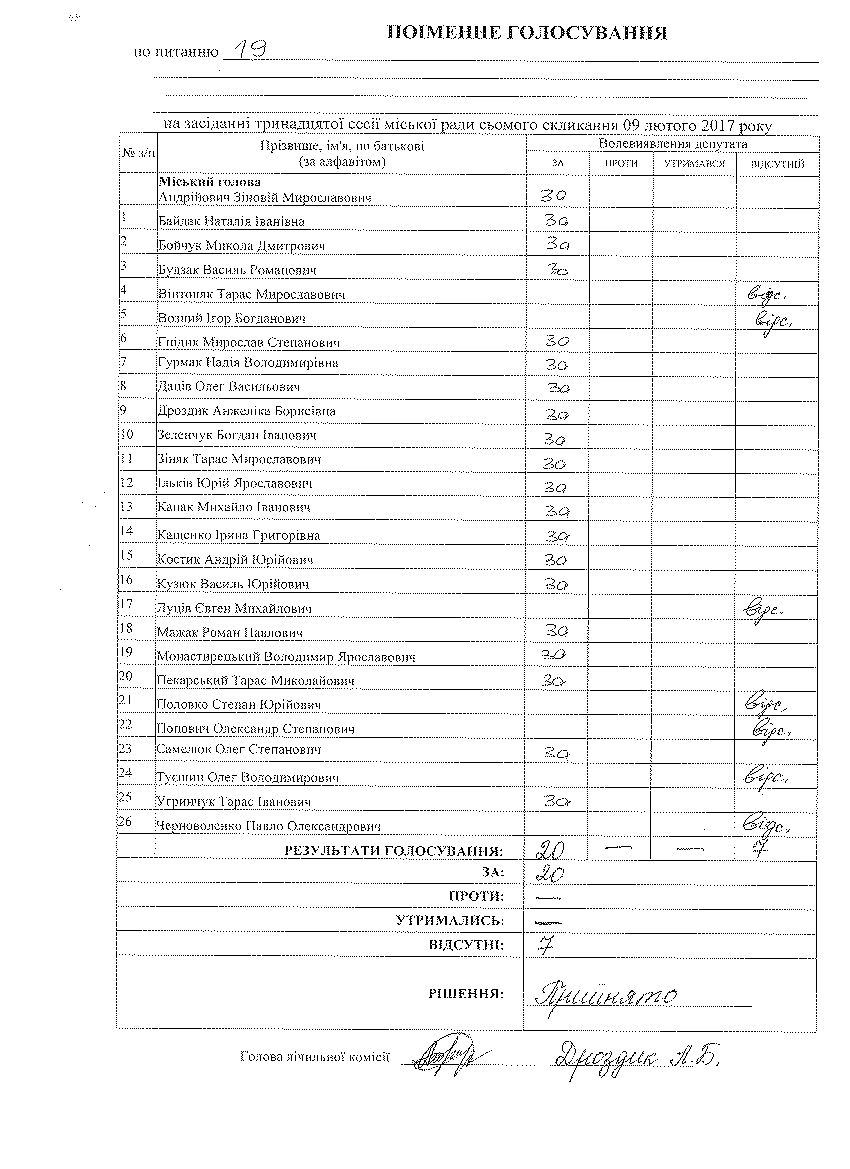 ПОІМЕННЕ ГОЛОСУВАННЯ
по питанню 19
на засіданні тринадцятої сесії міської ради сьомого скликання 09 лютого 2017 року
№ з/п Прізвище, ім'я, по батькові (за алфавітом) Волевиявлення депутата
ЗА ПРОТИ УТРИМАВСЯ ВІДСУТНІЙ
Міський голова
Андрійович Зіновій Мирославович за
1 Байдак Наталія Іванівна за
2 Бойчук Микола Дмитрович за
3 Будзак Василь Романович за
4 Вінтоняк Тарас Мирославович відс.
5 Возний Ігор Богданович відс.
6 Гнідик Мирослав Степанович за
7 Гурмак Надія Володимирівна за
8 Даців Олег Васильович за
9 Дроздик Анжеліка Борисівна за
10 Зеленчук Богдан Іванович за
11 Зіняк Тарас Мирославович за
12 Ільків Юрій Ярославович за
13 Капак Михайло Іванович за
14 Кащенко Ірина Григорівна за
15 Костик Андрій Юрійович за
16 Кузюк Василь Юрійович за
17 Луців Євген Михайлович відс.
18 Мажак Роман Павлович за
19 Монастирецький Володимир Ярославович за
20 Пекарський Тарас Миколайович за
21 Половко Степан Юрійович відс.
22 Попович Олександр Степанович відс.
23 Самелюк Олег Степанович за
24 Туєшин Олег Володимирович відс.
25 Угринчук Тарас Іванович за
26 Черноволенко Павло Олександрович відс.
РЕЗУЛЬТАТИ ГОЛОСУВАННЯ: 20 — — 7
ЗА: 20
ПРОТИ: —
УТРИМАЛИСЬ: —
ВІДСУТНІ: 7
РІШЕННЯ: Прийнято
Голова лічильної комісії Дроздик А.Б.